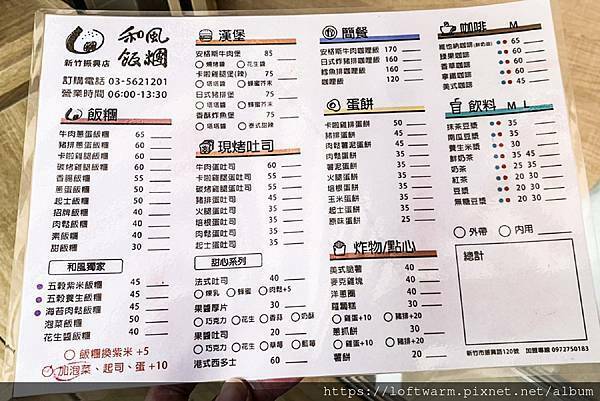 和風飯糰
新竹振興店
訂購電話 03-5621201
營業時間 06:00-13:30
飯糰
牛肉蔥蛋飯糰 65
豬排蔥蛋飯糰 60
卡啦雞腿飯糰 55
碳烤雞腿飯糰 55
香腸飯糰 55
蔥蛋飯糰 50
起士飯糰 50
招牌飯糰 40
肉鬆飯糰 40
素飯糰 40
甜飯糰 30
和風獨家
五穀紫米飯糰 45
五穀養生飯糰 45
海苔肉鬆飯糰 45
泡菜飯糰 50
花生醬飯糰 40
飯糰換紫米 +5
加泡菜、起司、蛋 +10
漢堡
安格斯牛肉堡 85
燒烤醬 花生醬
卡啦雞腿堡(辣) 75
塔塔醬 蜂蜜芥末
日式豬排堡 75
塔塔醬 蜂蜜芥末
香酥炸魚堡 75
塔塔醬 泰式甜辣
現烤吐司
牛肉蛋吐司 60
卡啦雞腿蛋吐司 50
碳烤雞腿蛋吐司 50
豬排蛋吐司 40
火腿蛋吐司 40
培根蛋吐司 40
肉鬆蛋吐司 40
起士蛋吐司 40
甜心系列
法式吐司 40
煉乳 蜂蜜 花生+5
果醬厚片 30
巧克力 花生 香蒜 奶酥
果醬吐司 20
巧克力 花生 草莓 藍莓
港式西多士 60
簡餐
安格斯牛肉咖哩飯 170
日式炸豬排咖哩飯 160
鱈魚排咖哩飯 160
咖哩飯 120
蛋餅
卡啦雞排蛋餅 50
豬排蛋餅 40
肉鬆薯泥蛋餅 40
肉鬆蛋餅 35
薯泥蛋餅 35
火腿蛋餅 35
培根蛋餅 35
玉米蛋餅 35
起士蛋餅 35
原味蛋餅 25
炸物/點心
美式脆薯 40
麥克雞塊 40
洋蔥圈 40
蘿蔔糕 30
雞蛋+10 豬排+20
蔥抓餅 30
雞蛋+10 豬排+20
薯餅 20
咖啡 M
榛果咖啡 65
香草咖啡 65
拿鐵咖啡 55
美式咖啡 45
飲料 M L
抹茶豆漿 35 45
南瓜豆漿 35
養生米漿 30
鮮奶茶 35 55
奶茶 25 35
紅茶 20 30
豆漿 20 30
無糖豆漿 20 30
外帶 內用
總計
新竹市振興路120號 加盟專線 0972750183
https://loftwarm.pixnet.net/album